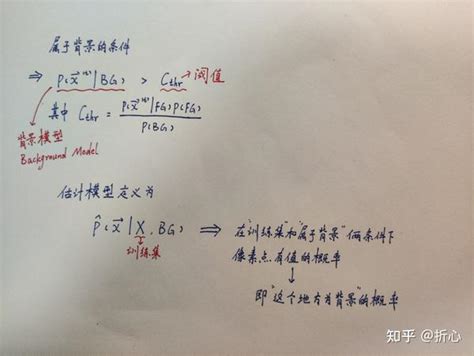 属于背景的条件
⇒ p(x⃗⁽ᵗ⁾|BG) > Cthr → 阈值
其中 Cthr = p(x⃗⁽ᵗ⁾|FG)p(FG) / p(BG)
背景模型
Background Model
估计模型定义为
p̂(x⃗|X, BG) ⇒ 在"训练集"和"属于背景"俩条件下
训练集
像素点有值的概率
即"这个地方为背景"的概率
知乎 @折心